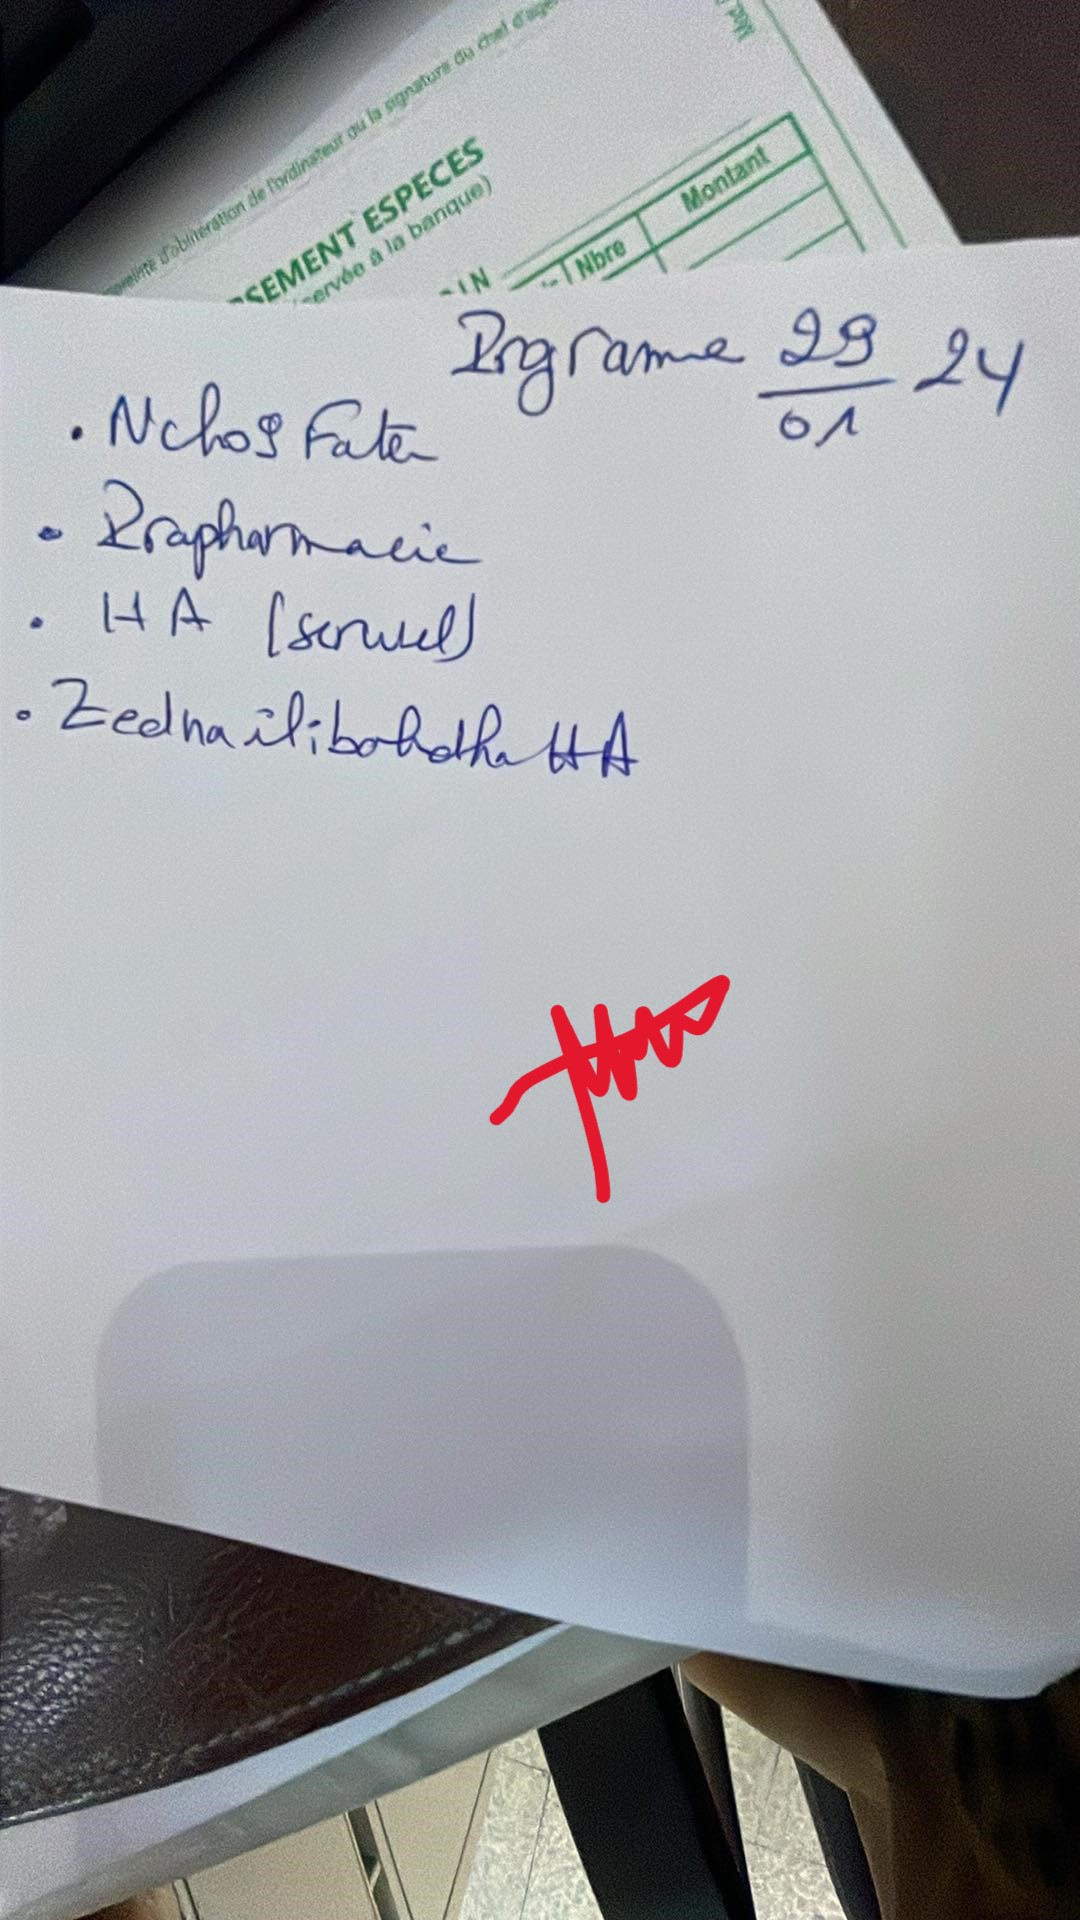 empreinte d'oblitération de l'ordinateur ou la signature du chef d'age
RSEMENT ESPECES
servée à la banque)
Nbre Montant
Programme 29/01 24
. Nchof Faten
. Parapharmacie
. HA (serwel)
. Zedna ili bahdha HA